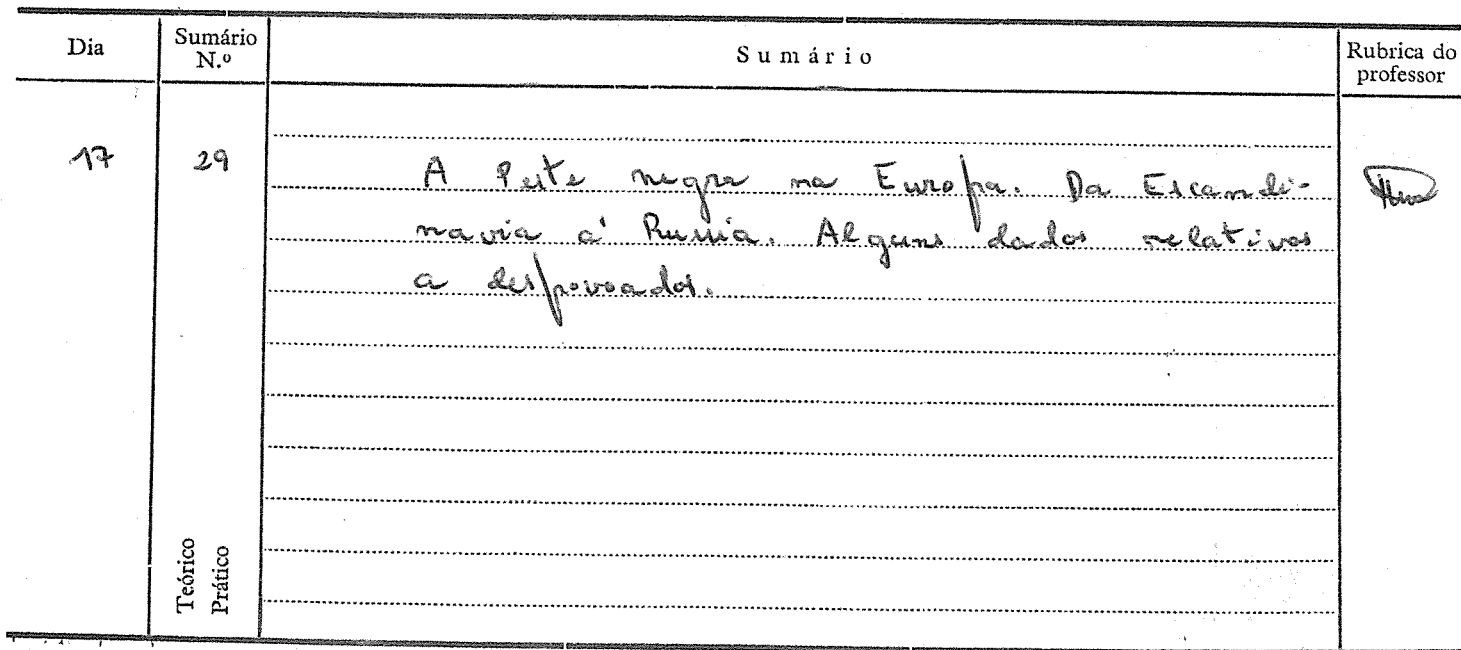 Dia Sumário N.º Sumário Rubrica do professor
17 29 A Peste negra na Europa. Da Escandi-
navia à Russia. Alguns dados relativos
a despovoados.
Teórico
Prático